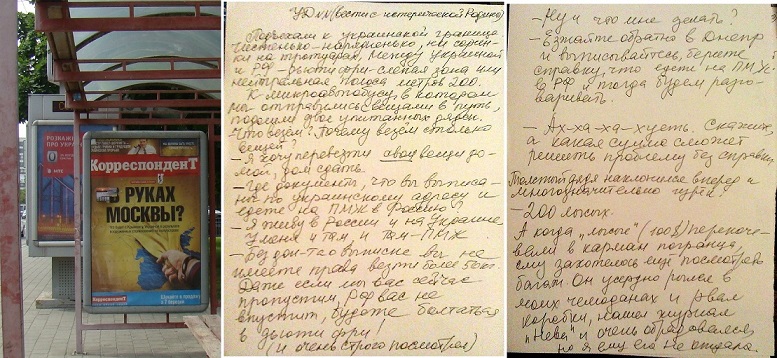 РОЗКАЖИ
ПРО УКР
Корреспондент
В РУКАХ
МОСКВЫ?
Корреспондент
УДМ (вести с исторической Родины)
Подъехали к украинской границе
чистенько-наряженько, ни сорин-
ки на тротуарах, между Украиной
и РФ - дьюти фри - слепая зона или
нейтральная полоса метров 200.
К микроавтобусу, в котором
мы отправились с вещами в путь,
подошли двое упитанных дядек.
- Что везём? Почему везём столько
вещей?
- Я хочу перевезти свои вещи до-
мой, дом сдать.
- Где документы, что вы выписа-
ны по украинскому адресу и
едете на ПМЖ в Россию?
- Я живу в России и на Украине,
У меня и там, и там - ПМЖ
- Без док-тов о выписке вы не
имеете права везти более 50кг.
Даже если мы вас сейчас
пропустим, РФ вас не
впустит, будете болтаться
в дьюти фри!
(и очень строго посмотрел)
- Ну и что мне делать?
- Езжайте обратно в Днепр
и выписывайтесь, берите
справку, что едете на ПМЖ
в РФ и тогда будем разго-
варивать.
- Ах-ха-ха-хуеть. Скажите,
а какая сумма сможет
решить проблему без справки?
Толстый дядя наклонился вперед и
многозначительно изрёк:
- 200 лысых.
А когда "лысые" (100$) перекоче-
вали в карман погранца,
ему захотелось ещё посмотреть
багаж. Он усердно рылся в
моих чемоданах и рвал
коробки, нашел журнал
"Нева" и очень обрадовался,
но я ему его не отдала.